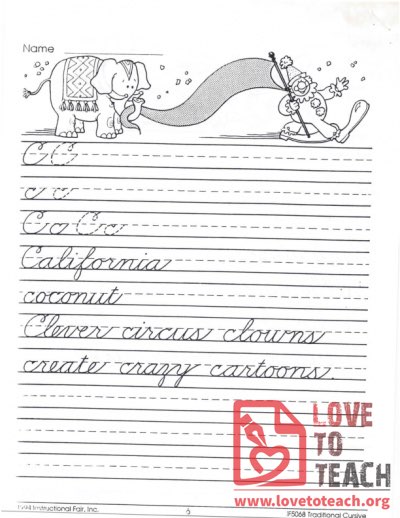 Name
C C
c c
Cc Cc
California
coconut
Clever circus clowns
create crazy cartoons.
LOVE
TO
TEACH
www.lovetoteach.org
Instructional Fair, Inc.
6
IF5068 Traditional Cursive